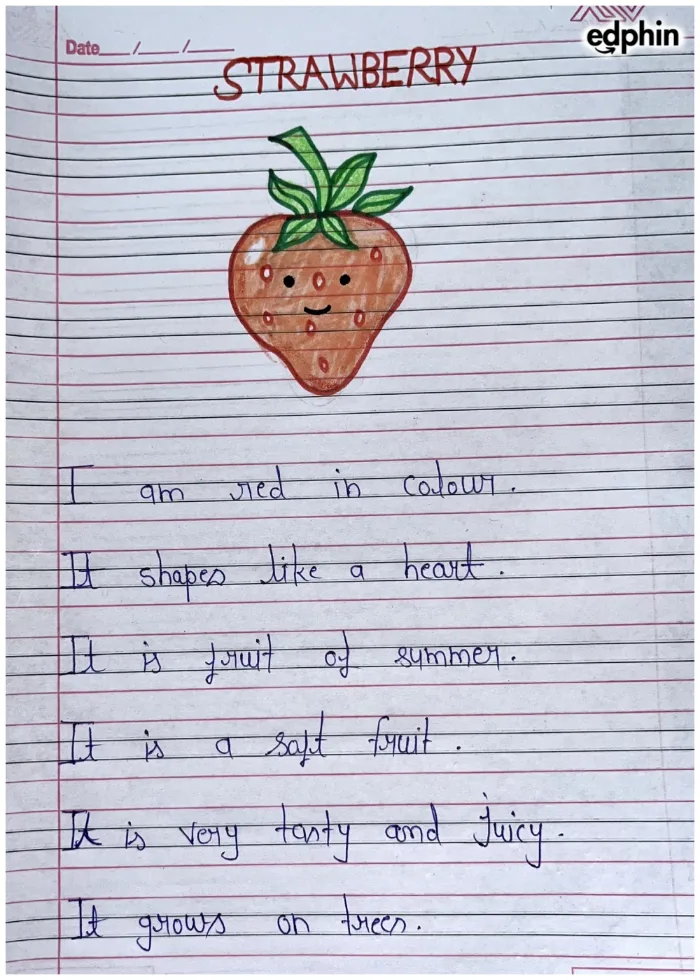 edphin
Date__/__/__
STRAWBERRY
I am red in colour.
It shapes like a heart.
It is fruit of summer.
It is a soft fruit.
It is very tasty and juicy.
It grows on trees.